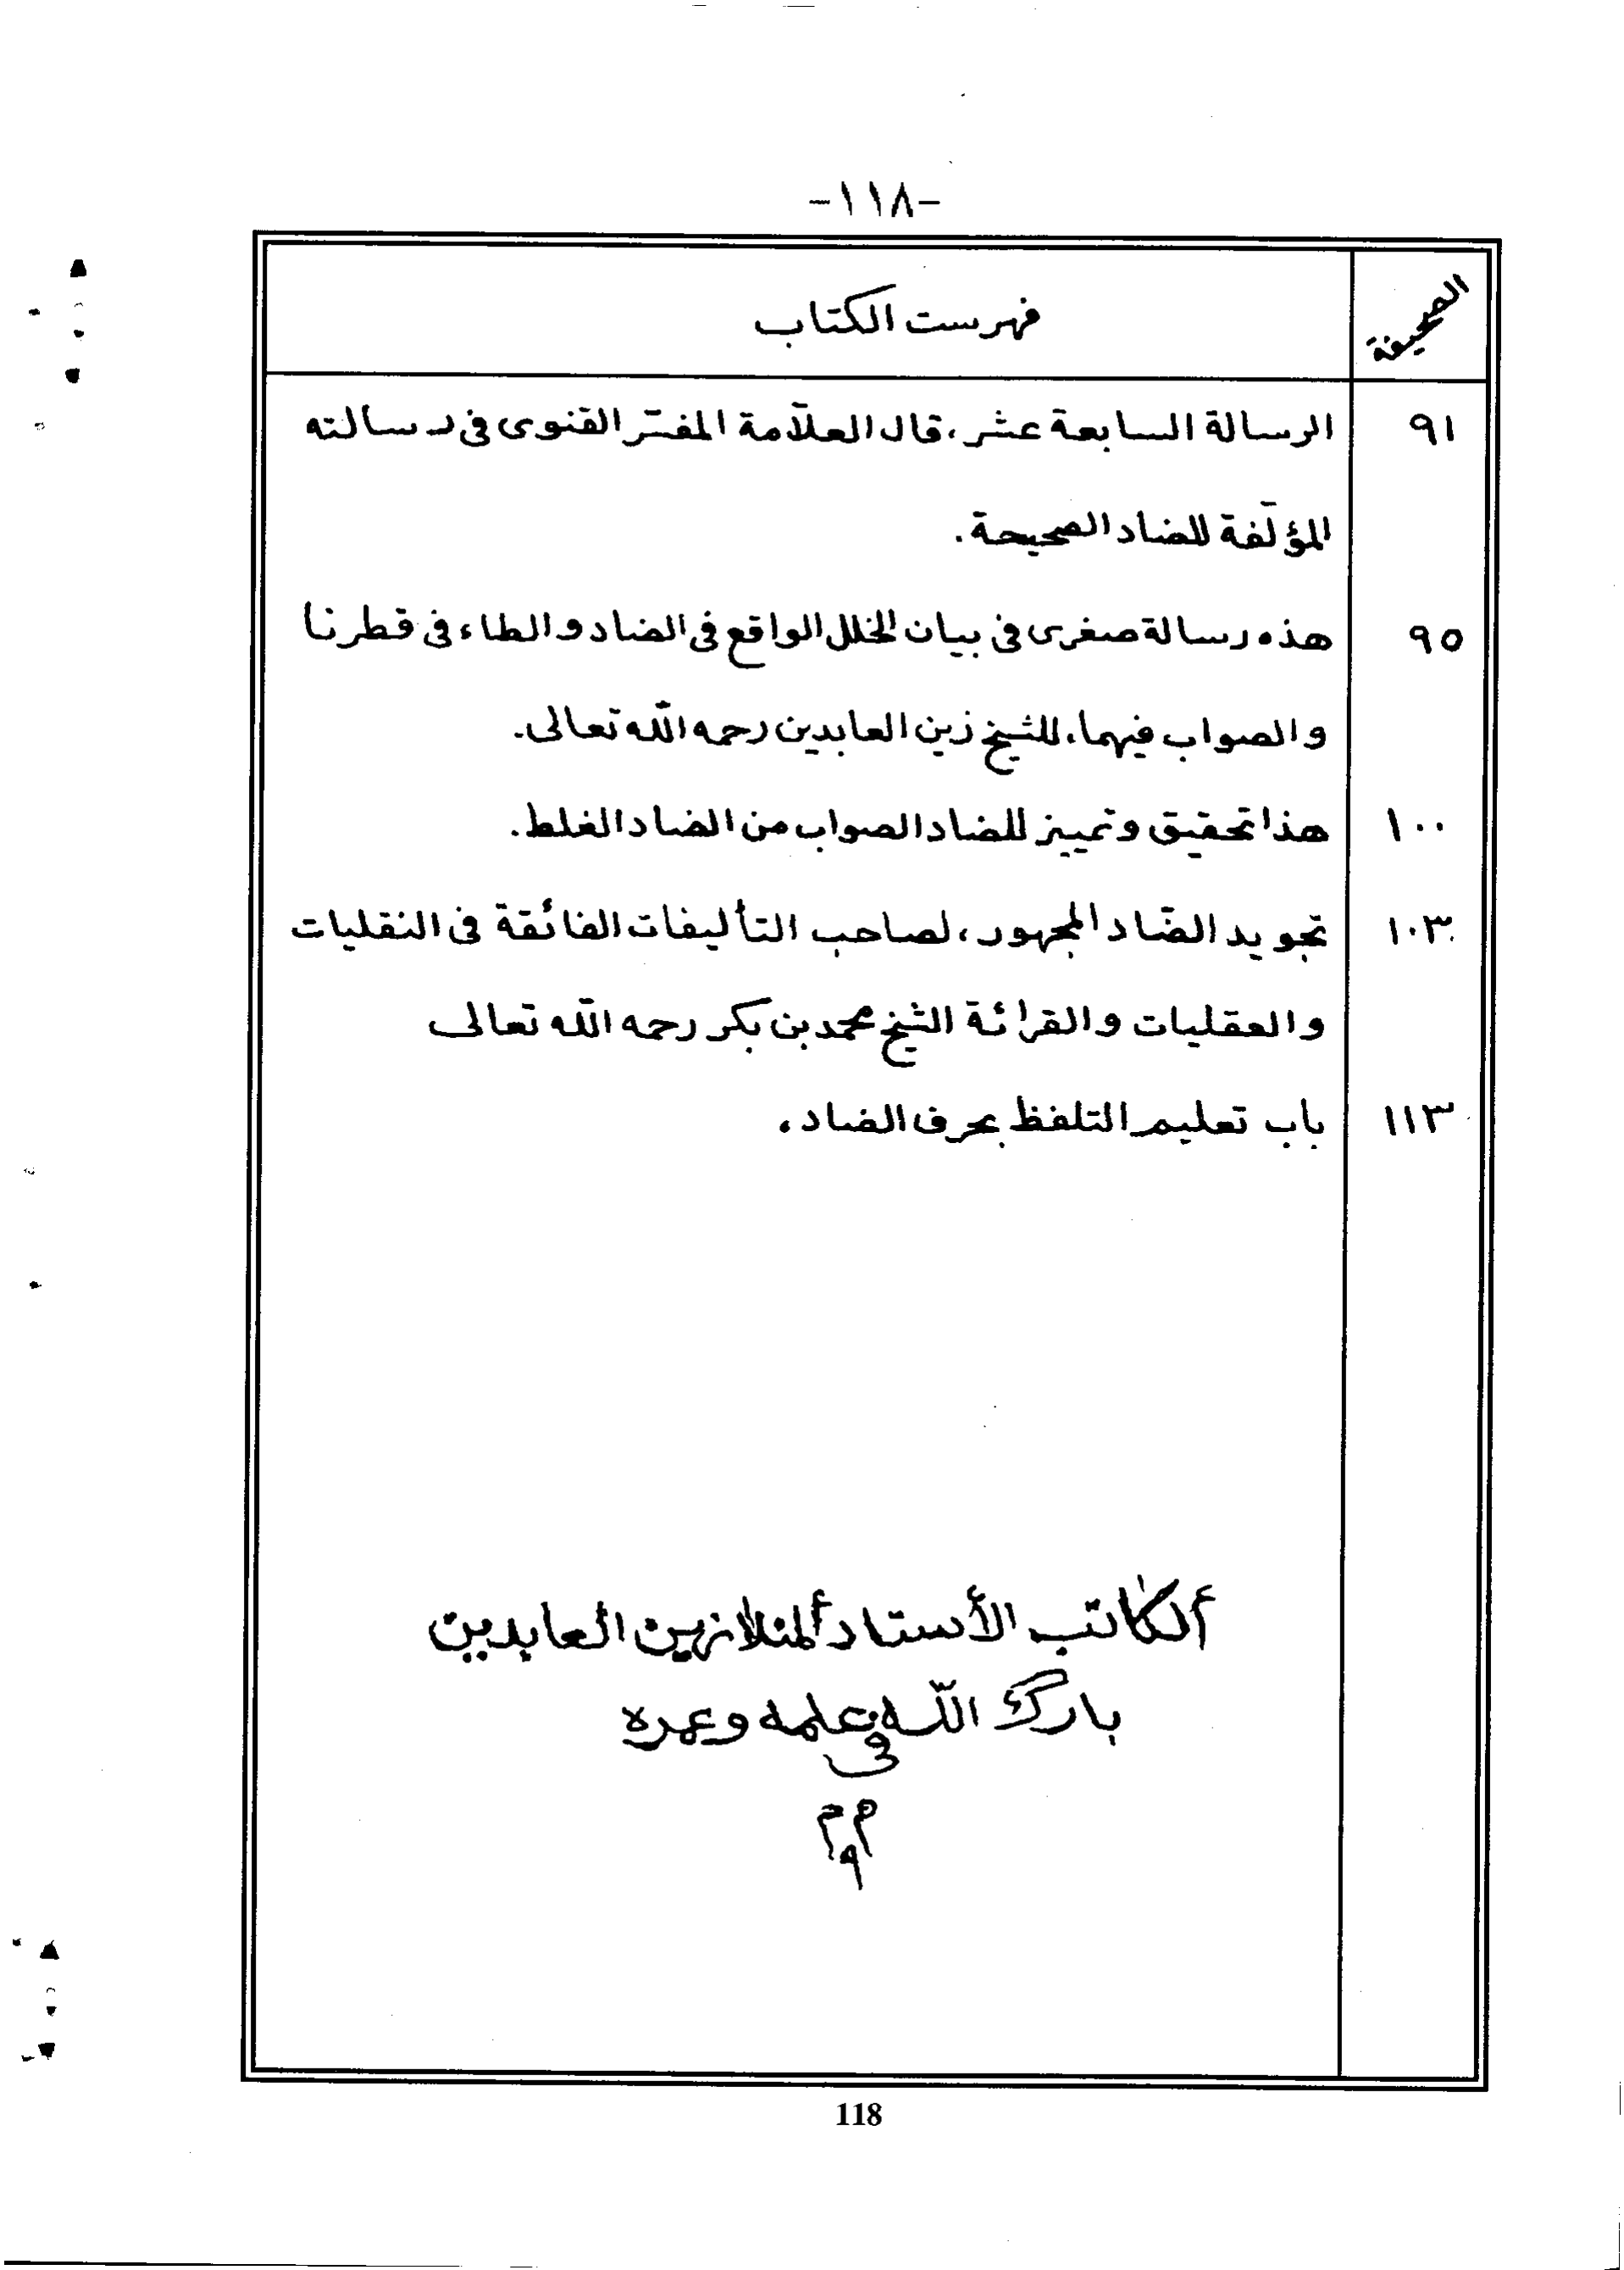 -١١٨-
الصحيفة فهرست الكتاب
٩١ الرسالة السابعة عشر، قال العلّامة المفسّر القنوى فى رسالته
المؤلّفة للضاد الصحيحة.
٩٥ هذه رسالة صغرى فى بيان الخلل الواقع فى الضاد و الطاء فى قطرنا
والصواب فيهما، للشيخ زين العابدين رحمه الله تعالى.
١٠٠ هذا تحقيق وتمييز للضاد الصواب من الضاد الغلط.
١٠٣ تجويد الضّاد المجهور، لصاحب التأليفات الفائقة فى النقليات
والعقليات والقرائة الشيخ محمد بن بكر رحمه الله تعالى
١١٣ باب تعليم التلفظ بحرف الضاد،
ألكاتب الأستاد ألمنلا زين العابدين
بارك اللّه فى علمه وعمره
م م
٩
118